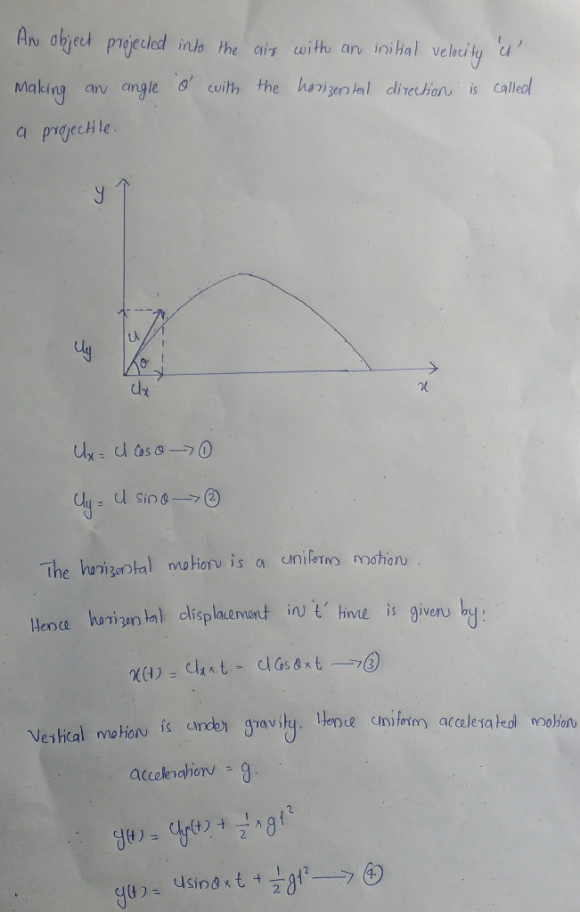 An object projected into the air with an initial velocity 'u'
Making an angle 'θ' with the horizontal direction is called
a projectile.
y
u
Uy
θ
Ux
x
Ux = U Cos θ → ①
Uy = U sin θ → ②
The horizontal motion is a uniform motion.
Hence horizontal displacement in 't' time is given by:
x(t) = Ux × t = U Cos θ × t → ③
Vertical motion is under gravity. Hence uniform accelerated motion
acceleration = g.
∴ y(t) = Uy(t) + 1/2 × gt²
y(t) = U sin θ × t + 1/2 gt² → ④